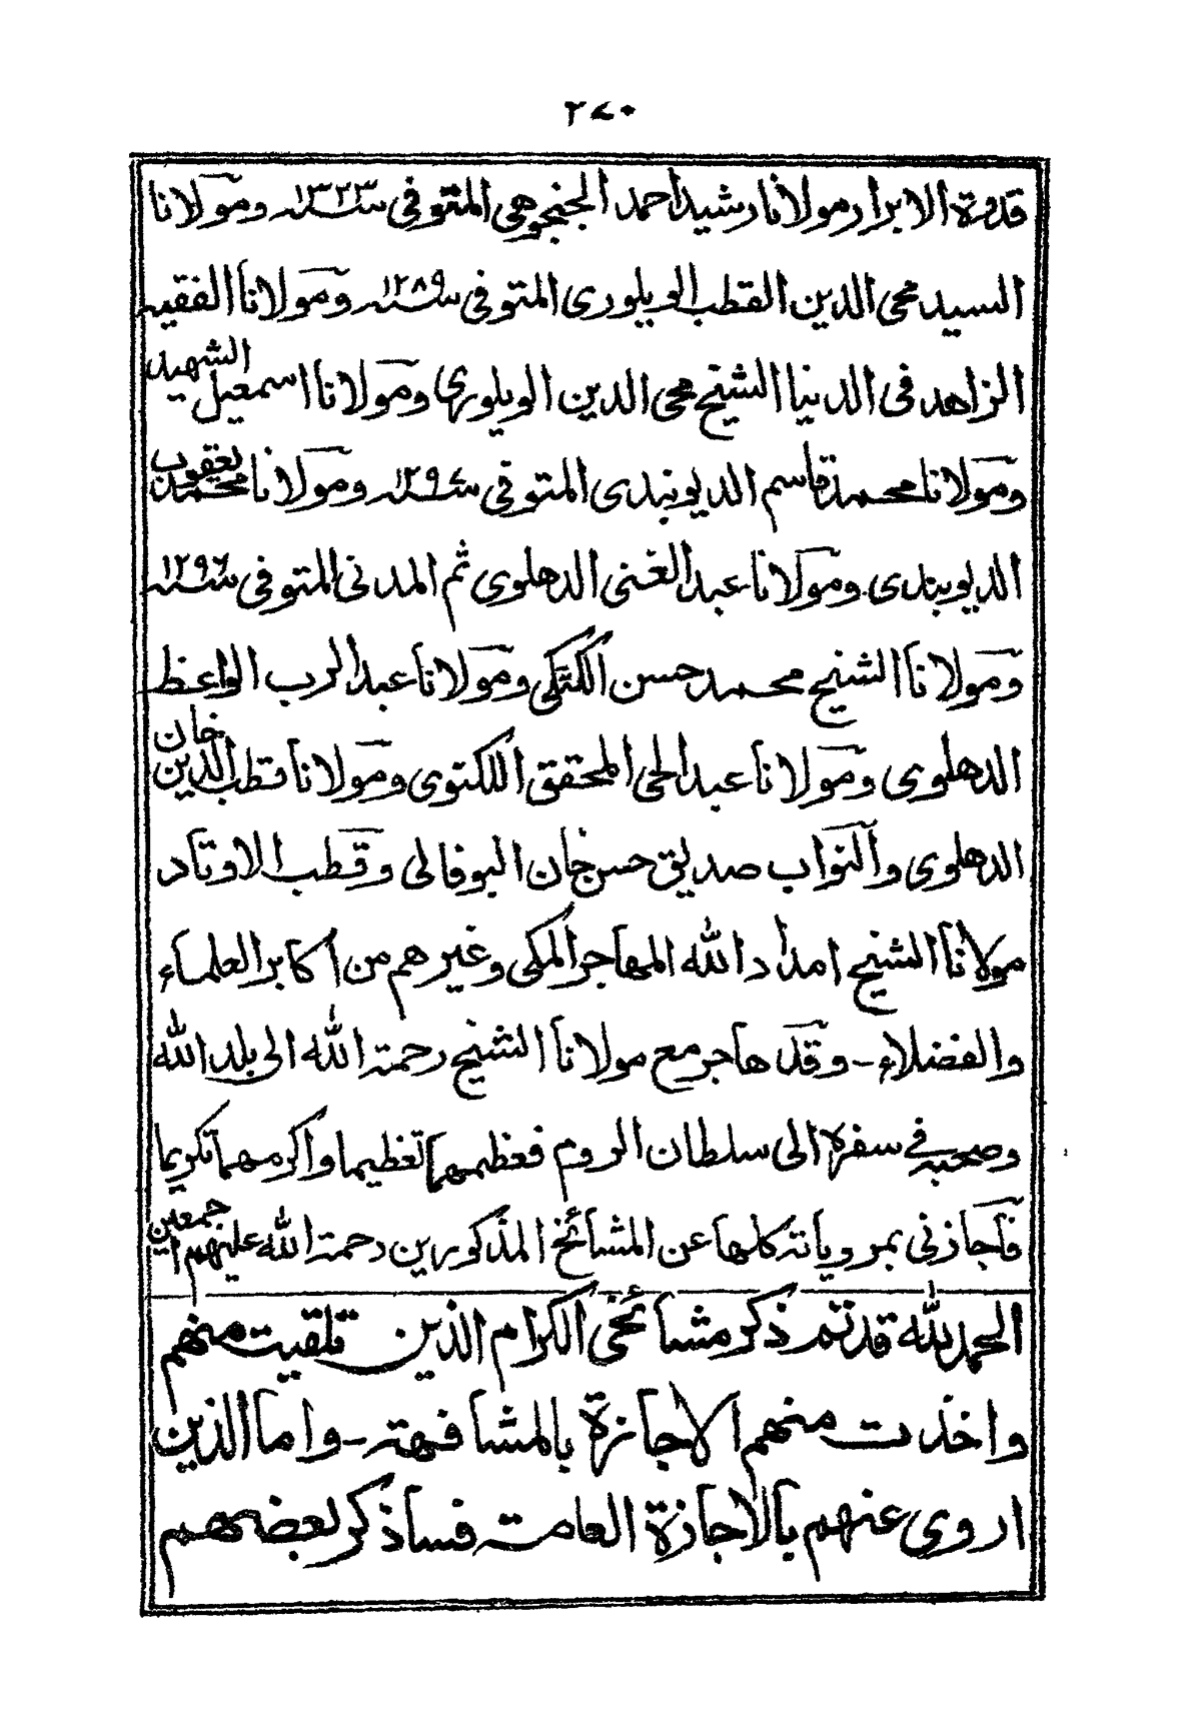 ٢٧٠
قدوة الابرار مولانا رشيد احمد الجنجوهي المتوفى سنة ١٣٢٣ ومولانا
السيد محي الدين القطب الويلوري المتوفى سنة ١٢٨٩ ومولانا الفقيه
الزاهد في الدنيا الشيخ محي الدين الويلوري ومولانا اسمعيل الشهيد
ومولانا محمد قاسم الديوبندى المتوفى سنة ١٢٩٧ ومولانا محمد يعقوب
الديوبندى ومولانا عبد الغنى الدهلوى ثم المدنى المتوفى سنة ١٢٩٦
ومولانا الشيخ محمد حسن الكتكى ومولانا عبد الرب الواعظ
الدهلوى ومولانا عبد الحى المحقق اللكنوى ومولانا قطب الدين خان
الدهلوى والنواب صديق حسن خان البوفالى وقطب الاوتاد
مولانا الشيخ امداد الله المهاجر المكى وغيرهم من اكابر العلماء
والفضلاء - وقد هاجر مع مولانا الشيخ رحمة الله الى بلد الله
وصحبه في سفره الى سلطان الروم فعظمهما تعظيما واكرمهما تكريما
فاجازنى بمروياته كلها عن المشائخ المذكورين رحمة الله عليهم اجمعين
الحمد لله قد تم ذكر مشائخى الكرام الذين تلقيت منهم
واخذت منهم الاجازة بالمشافهة - واما الذين
اروى عنهم بالاجازة العامة فساذكر بعضهم